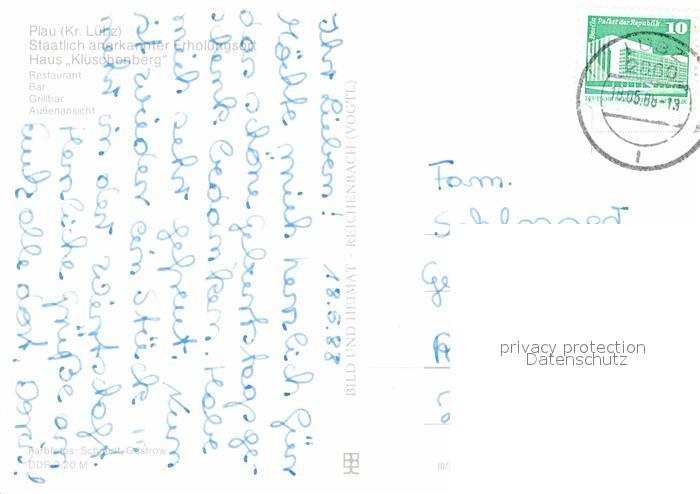 Plau (Kr. Lübz)
Staatlich anerkannter Erholungsort
Haus „Klüschenberg“
Restaurant
Bar
Grillbar
Außenansicht
Ihr Lieben! 18.5.88
Möchte mich herzlich für
das schöne Geburtstagsge-
schenk bedanken. Habe
mich sehr gefreut. Nun
ist wieder ein Stück
mehr in der Wirtschaft
Herzliche Grüße an
Euch alle dort,
BILD UND HEIMAT · REICHENBACH (VOGTL)
Farbfotos: Schmidt, Güstrow
DDR 0,20 M
Berlin Palast der Republik
10
18.05.88-13
Fam.
privacy protection
Datenschutz